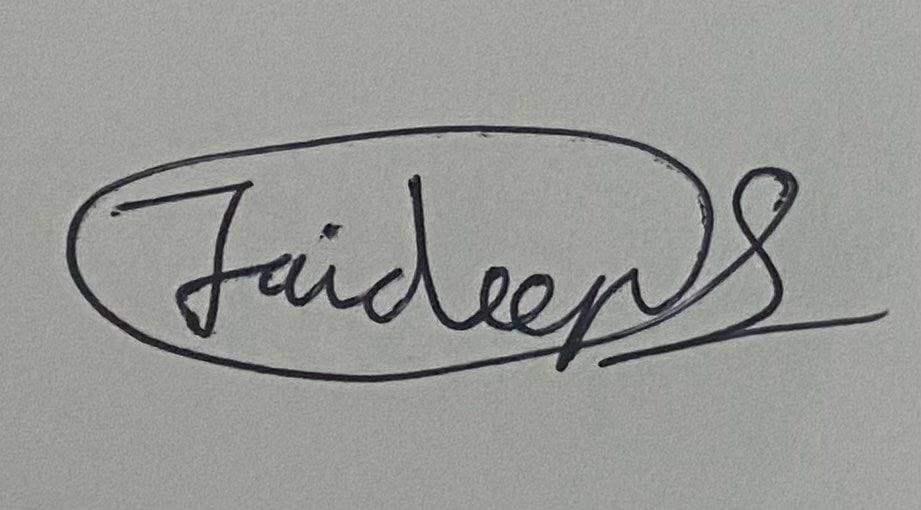 Jaideep S